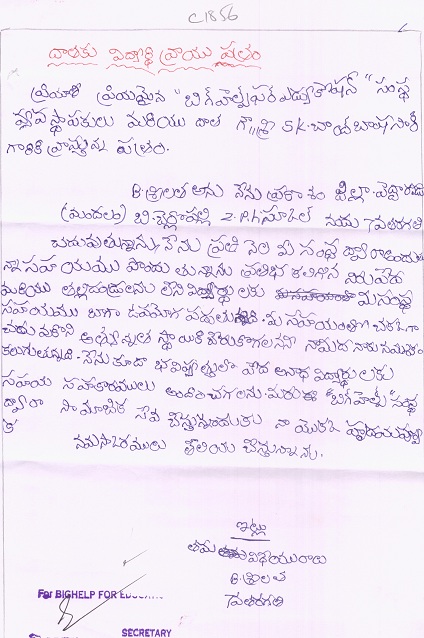 C1856
దాతకు విద్యార్థి వ్రాయు పత్రం
ప్రియాతి ప్రియమైన "బిగ్ హెల్ప్ ఫర్ ఎడ్యుకేషన్" సంస్థ
వ్యవస్థాపకులు మరియు దాత గౌ శ్రీ S.K. చాంద్ బాషా
గారికి వ్రాస్తున్న పత్రం.
B. శ్రీలత అను నేను ప్రకాశం జిల్లా
(మండలం) బి. చెర్లోపల్లి Z.P.H స్కూల్ నయి 7వతరగతి
చదువుతున్నాను. నేను ప్రతి నెల మీ సంస్థ ద్వారా
సహాయము పొందుతున్నాను ప్రతిభ కలిగిన నిరుపేద
మరియు తల్లిదండ్రులు లేని విద్యార్థులకు మీ సంస్థ
సహాయము బాగా ఉపయోగ పడుతున్నది. మీ సహాయంతో
చదువుకొని అత్యున్నత స్థాయికి చేరుకోగలనని
కలుగుతున్నది. నేను కూడా భవిష్యత్తులో పేద అనాధ విద్యార్థులకు
సహాయ సహకారములు అందించగలను. మీరు ఈ "బిగ్ హెల్ప్" సంస్థ
ద్వారా సామాజిక సేవ చేస్తున్నందుకు నా యొక్క హృదయపూర్వ
క
నమస్కారములు తెలియచేస్తున్నాను.
ఇట్లు
తమ విధేయురాలు
B. శ్రీలత
7వతరగతి
For BIGHELP FOR
SECRETARY